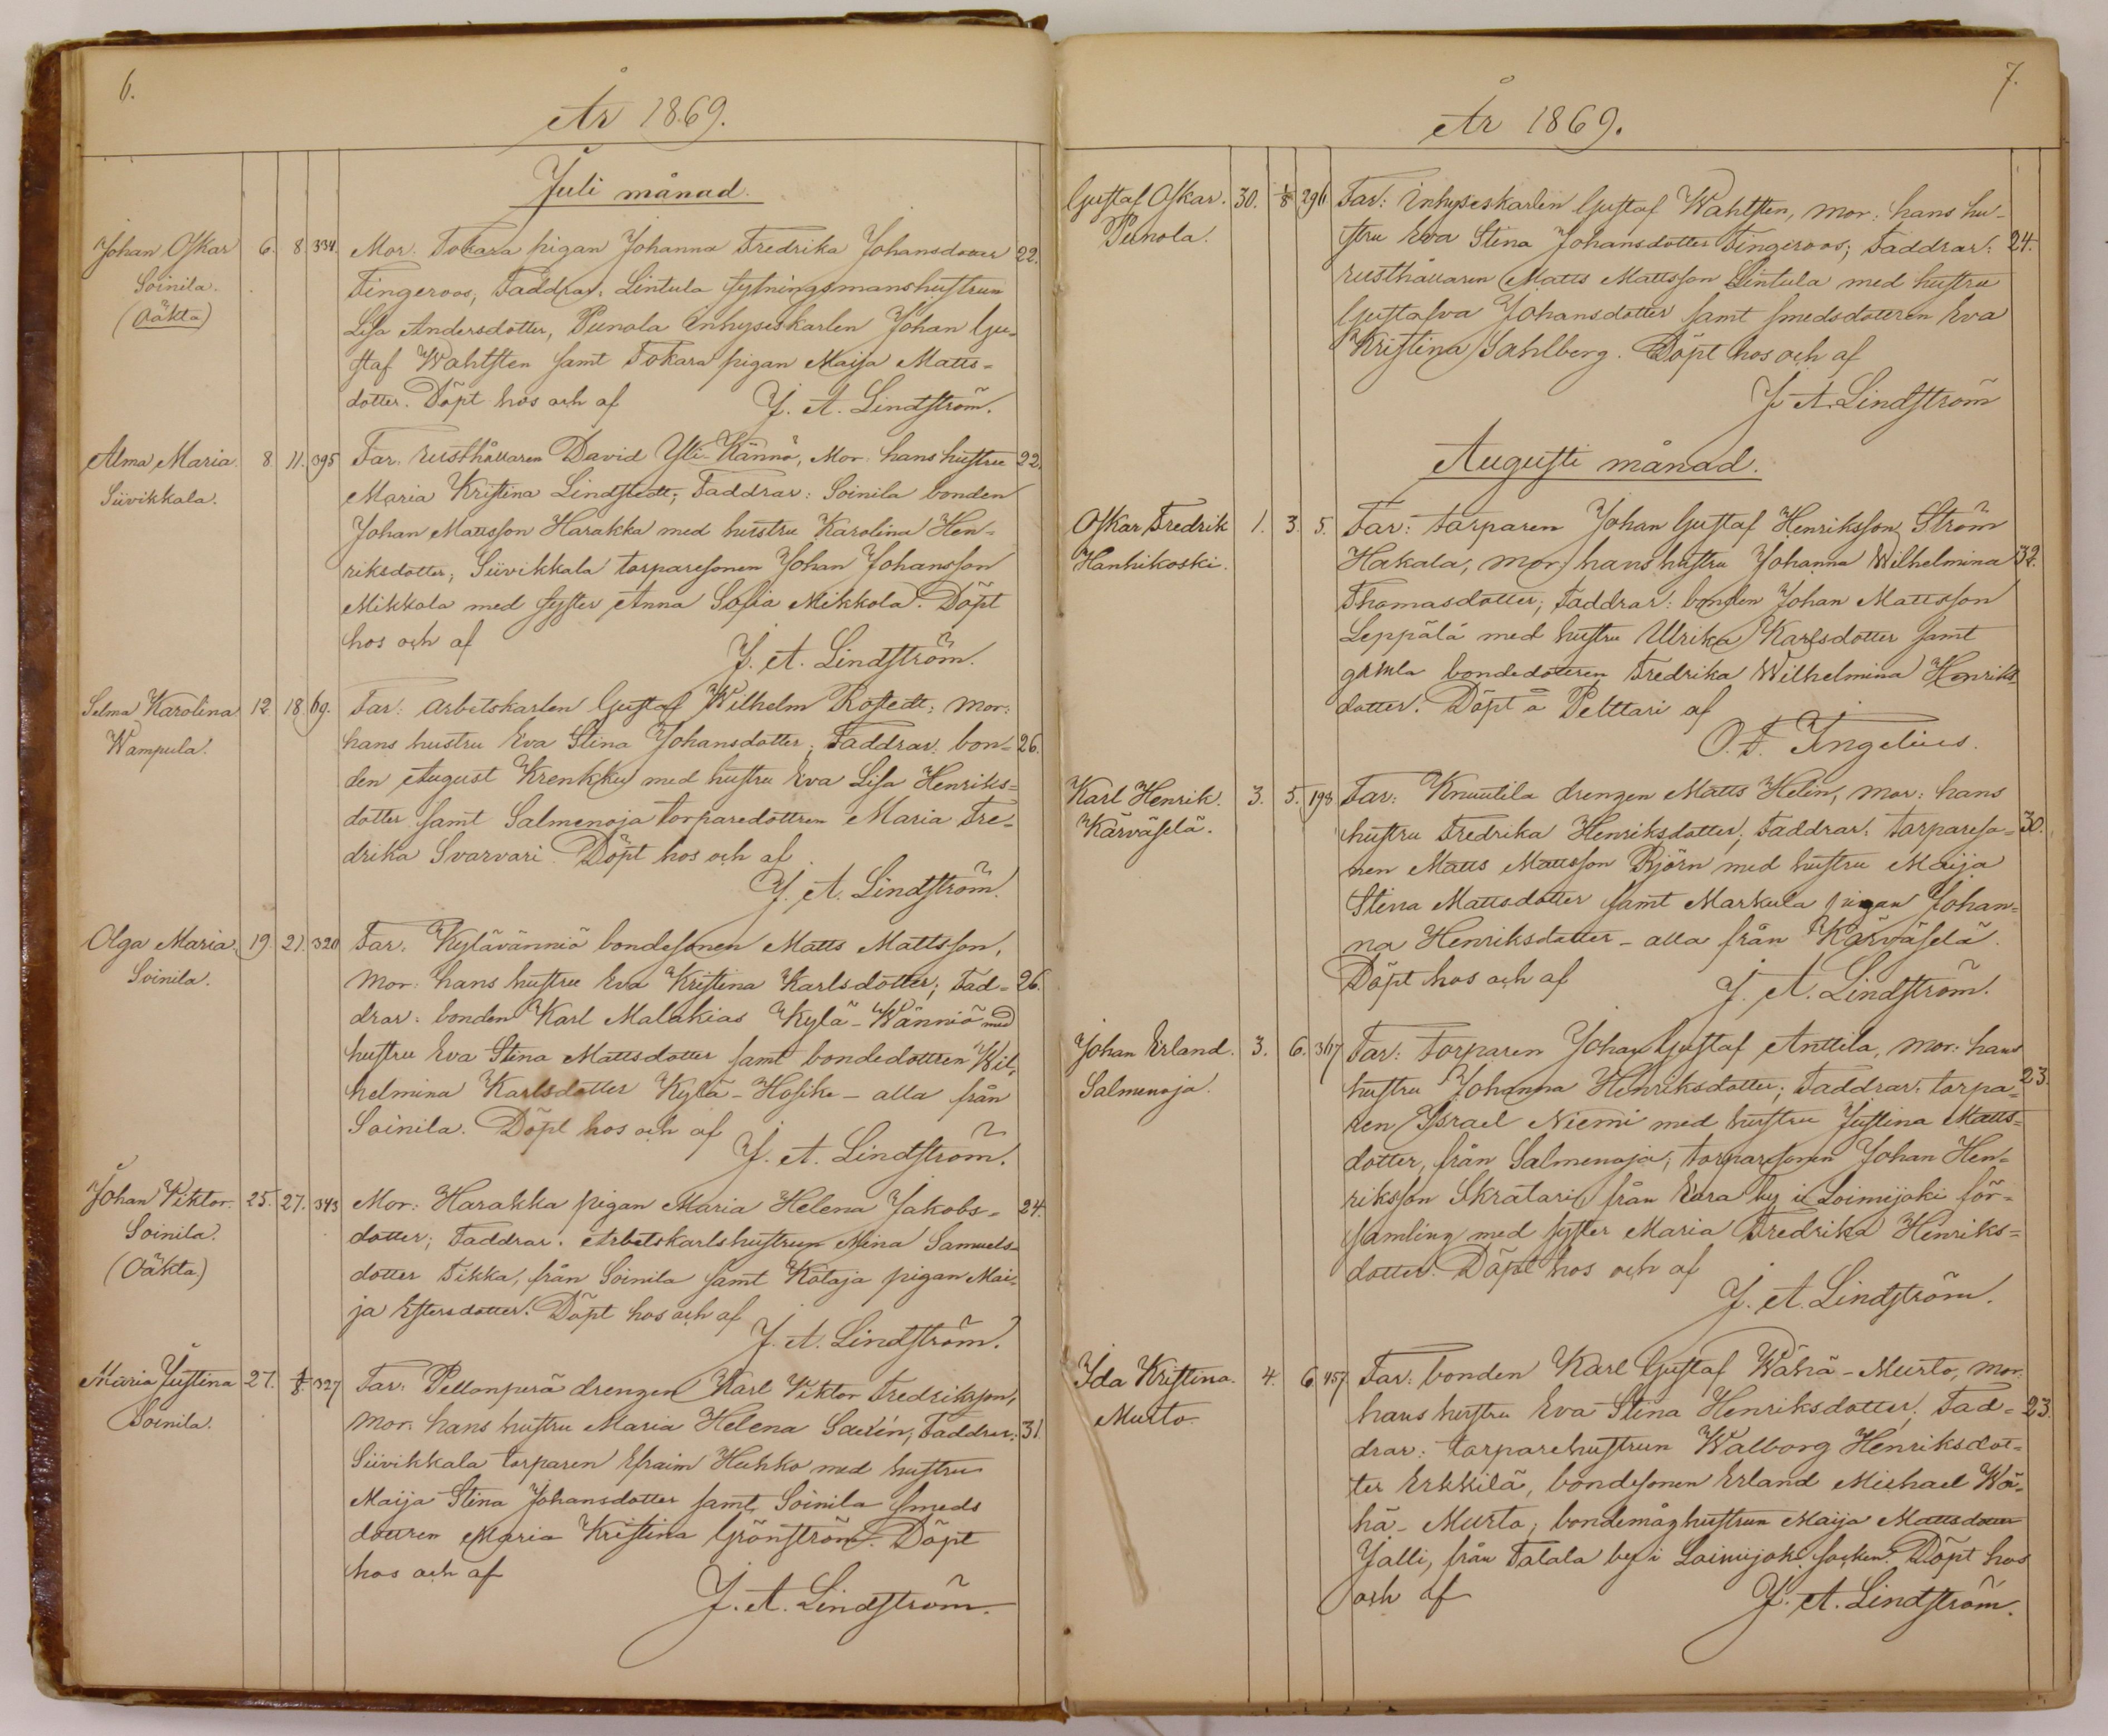 6.
År 1869.
Juli månad.
Johan Oskar 6. 8. 334. Mor: Tokara pigan Johanna Fredrika Johansdotter 22.
Soinila. Fingeroos; Faddrar: Lintula fyfningsmanshustrun
(Oäkta) Lisa Andersdotter, Punola inhyseskarlen Johan Gu-
staf Wahlsten samt Tokara pigan Maija Matts-
dotter. Döpt hos och af J. A. Lindström.
Alma Maria. 8. 11. 395 Far: rusthållaren David Yli-Männö, Mor: hans hustru 22.
Siivikkala. Maria Kristina Lindstedt; Faddrar: Soinila bonden
Johan Mattsson Harakka med hustru Karolina Hen-
riksdotter; Siivikkala torparesonen Johan Johansson
Mikkola med syster Anna Sofia Mikkola. Döpt
hos och af J. A. Lindström.
Selma Karolina 12. 18. 69. Far: arbetskarlen Gustaf Wilhelm Rostedt; Mor:
Wampula. hans hustru Eva Stina Johansdotter; Faddrar: bon- 26.
den August Krenkku med hustru Eva Lisa Henriks-
dotter samt Salmenoja torparedottren Maria Fre-
drika Svarvari. Döpt hos och af
J. A. Lindström.
Olga Maria. 19. 21. 320 Far: Kylävänniö bondesonen Matts Mattsson,
Soinila. Mor: hans hustru Eva Kristina Karlsdotter; Fad- 26.
drar: bonden Karl Malakias Kylä-Wänniö med
hustru Eva Stina Mattsdotter samt bondedottren Wil-
helmina Karlsdotter Kylä-Hosike - alla från
Soinila. Döpt hos och af
J. A. Lindström.
Johan Viktor. 25. 27. 343 Mor: Harakka pigan Maria Helena Jakobs- 24.
Soinila. dotter; Faddrar: Arbetskarlshustrun Mina Samuels-
(Oäkta) dotter Tikka, från Soinila samt Kataja pigan Mai-
ja Estersdotter. Döpt hos och af
J. A. Lindström.
Maria Justina 27. 1/8. 327 Far: Peltonperä drengen Karl Viktor Fredriksson,
Soinila. Mor: hans hustru Maria Helena Saxén; Faddrar: 31.
Siivikkala torparen Efraim Huhko med hustru
Maija Stina Johansdotter samt Soinila smeds
dottren Maria Kristina Grönström. Döpt
hos och af
J. A. Lindström.
7.
År 1869.
Gustaf Oskar. 30. 1/8 296 Far: inhyseskarlen Gustaf Wahlsten, mor: hans hu-
Punola. stru Eva Stina Johansdotter Fingeroos; Faddrar: 24.
rusthållaren Matts Mattsson Lintula med hustru
Gustafva Johansdotter samt smedsdottren Eva
Kristina Sahlberg. Döpt hos och af
J. A. Lindström
Augusti månad.
Oskar Fredrik 1. 3. 5. Far: torparen Johan Gustaf Henriksson Ström
Hanhikoski. Hakala, mor: hans hustru Johanna Wilhelmina 32.
Thomasdotter; Faddrar: bonden Johan Mattsson
Leppälä med hustru Ulrika Karlsdotter samt
gamla bondedottren Fredrika Wilhelmina Henriks-
dotter. Döpt å Pelttari af
O. F. Ingelius.
Karl Henrik. 3. 5. 198 Far: Knuutila drengen Matts Helin, mor: hans
Kärväselä. hustru Fredrika Henriksdotter; Faddrar: torpareso- 30.
nen Matts Mattsson Björn med hustru Maija
Stina Mattsdotter samt Markula pigan Johan-
na Henriksdotter - alla från Kärväselä.
Döpt hos och af J. A. Lindström.
Johan Erland. 3. 6. 367 Far: torparen Johan Gustaf Anttila, mor: hans
Salmenoja. hustru Johanna Henriksdotter; Faddrar: torpa- 23.
ren Israel Niemi med hustru Justina Matts-
dotter, från Salmenoja; torparesonen Johan Hen-
riksson Skratari från Eura by i Loimijoki för-
samling med syster Maria Fredrika Henriks-
dotter. Döpt hos och af
J. A. Lindström.
Ida Kristina. 4. 6. 457 Far: bonden Karl Gustaf Wähä-Murto, mor:
Murto. hans hustru Eva Stina Henriksdotter. Fad- 23.
drar: torparehustrun Walborg Henriksdot-
ter Erkkilä, bondesonen Erland Michael Wä-
hä-Murto; bondemåghustrun Maija Mattsdotter
Jalli, från Talala by i Loimijoki socken. Döpt hos
och af J. A. Lindström.